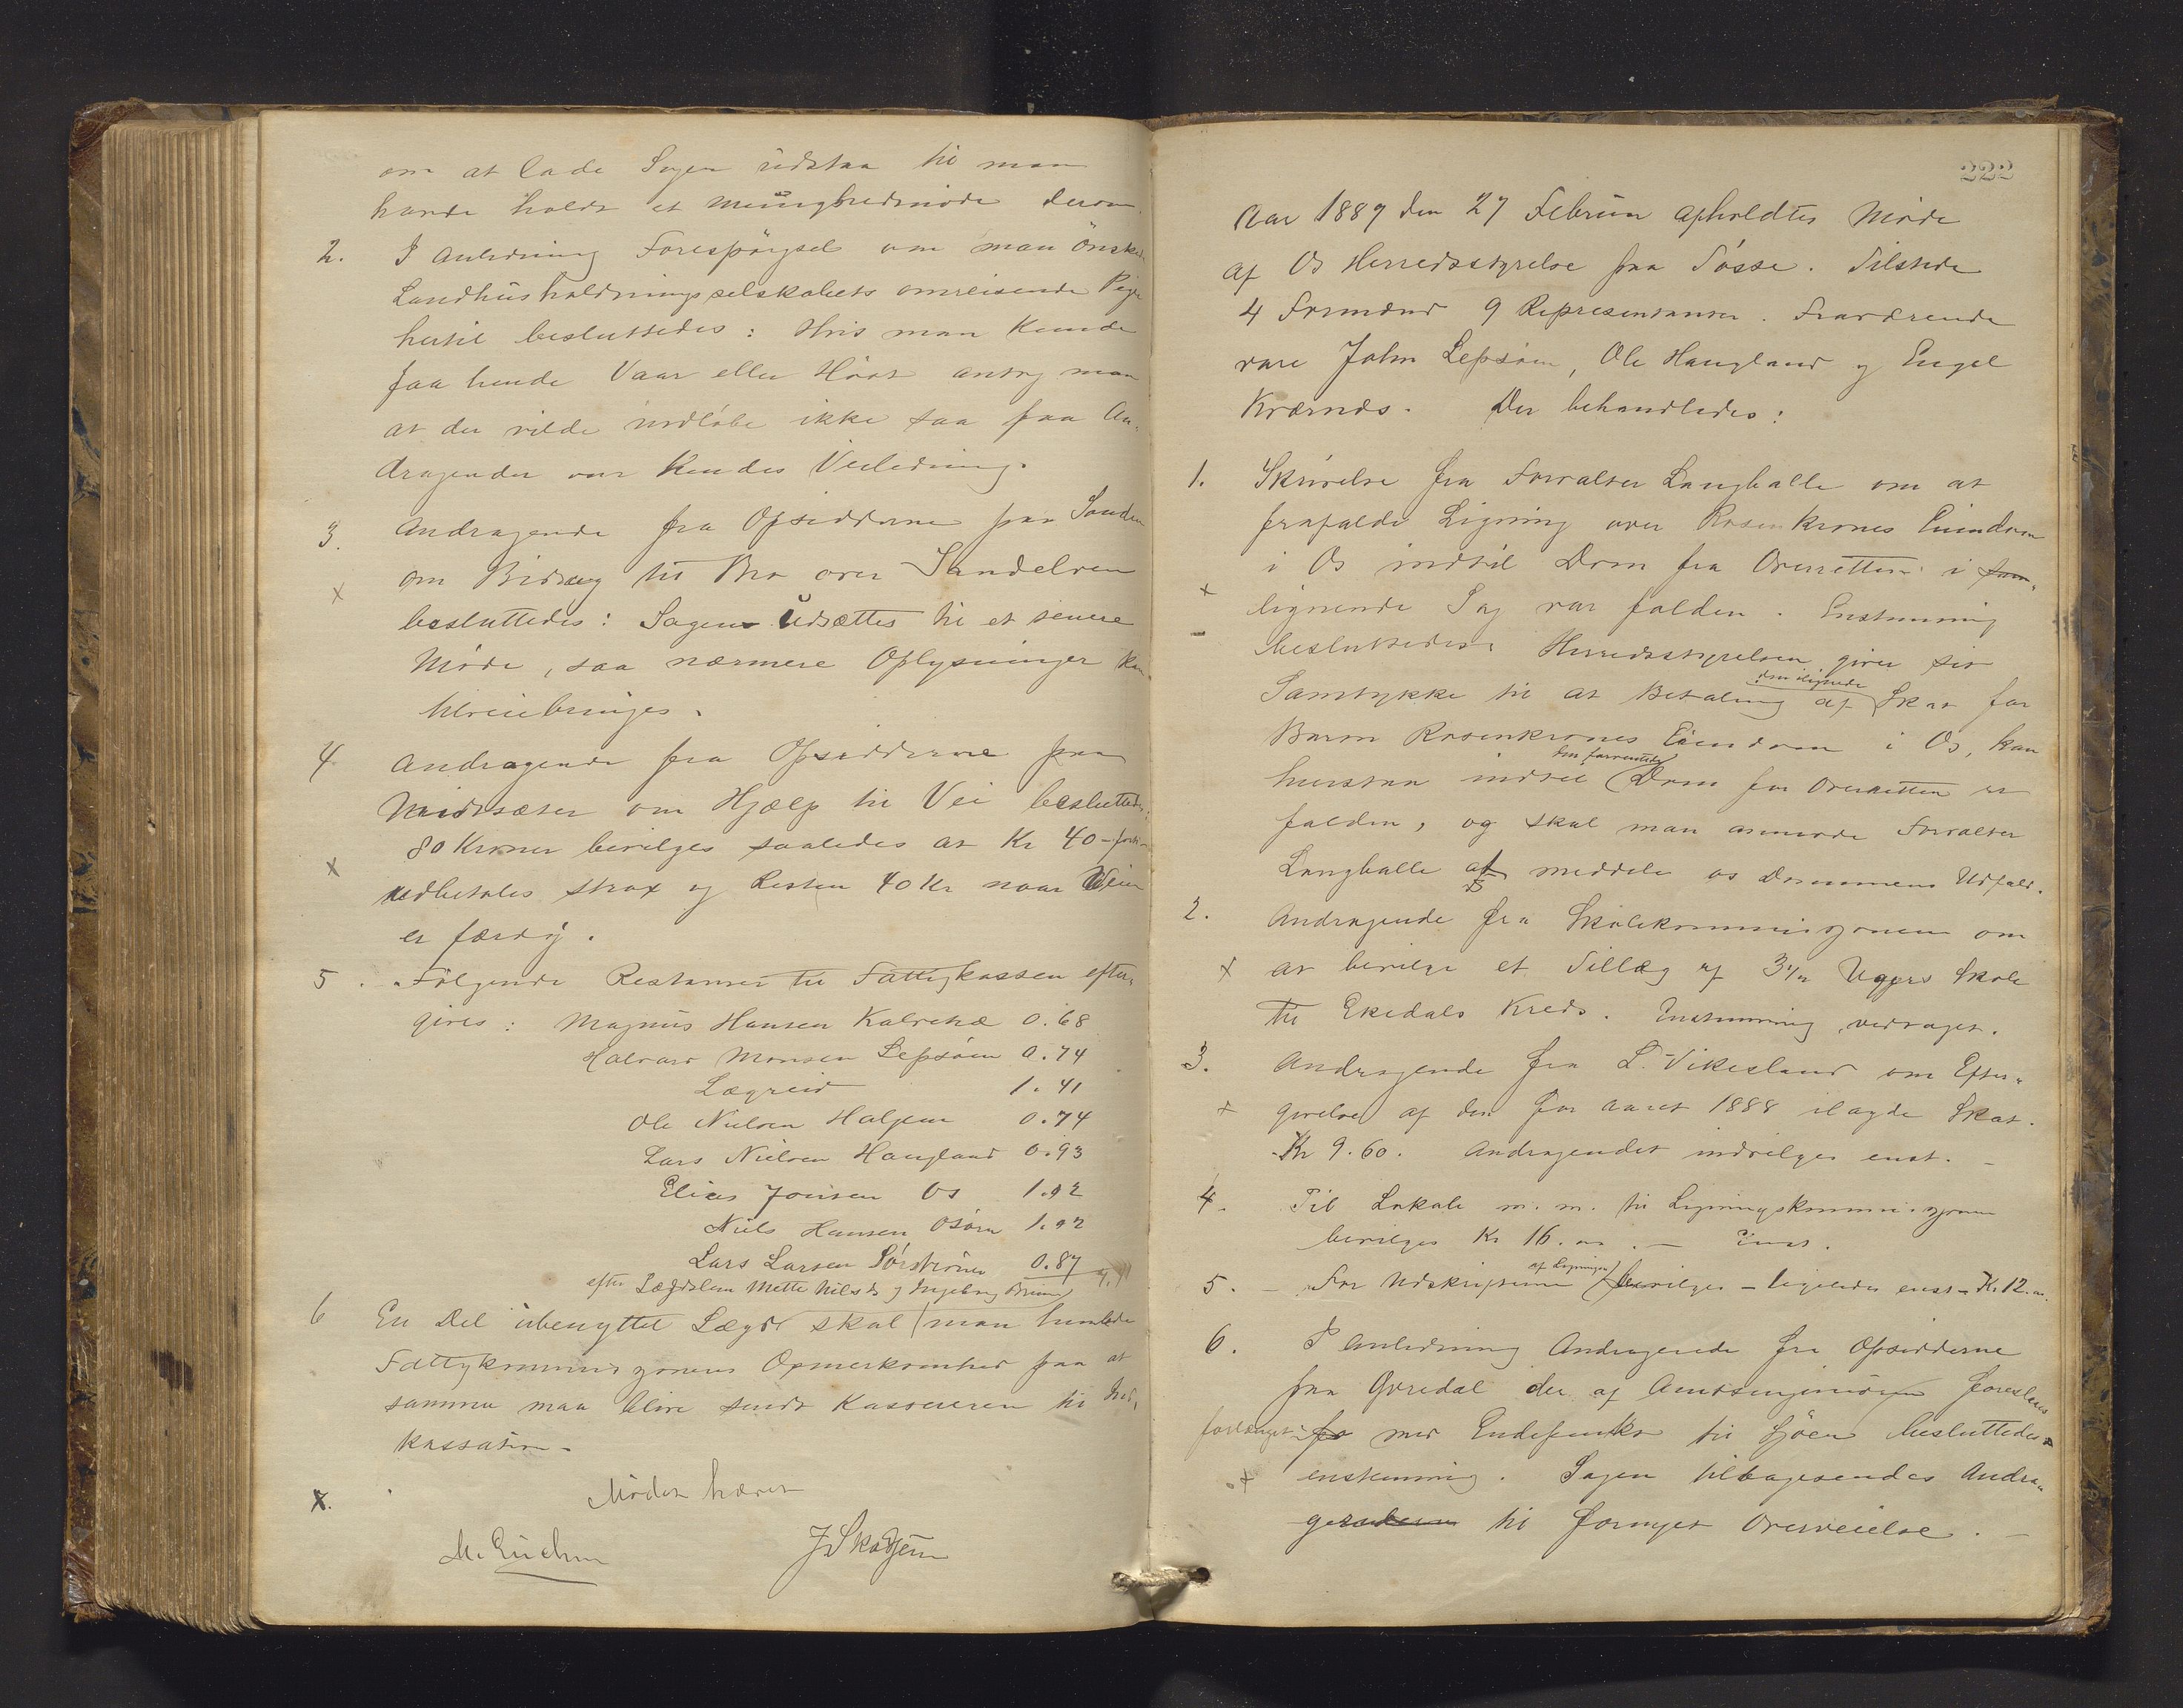 om at lade Sagen udstaa til man
havde holdt et Menighedsmöde derom.
2. I Anledning Forespörgsel om man önsked
Landhusholdningsselskabets omreisende Pige
hertil besluttedes: Hvis man kunde
faa hende Vaar eller Höst antog man
at der vilde indlöbe ikke saa faa An-
dragender om hendes Veiledning.
3. Andragende fra Opsidderne paa Sanden
om Bidrag til Bro over Sandelven
x
besluttedes: Sagen udsættes til et senere
Möde, saa nærmere Oplysninger kan
tilveiebringes.
4 Andragende fra Opsidderne paa
Midtsæter om Hjælp til Vei besluttedes:
80 Kroner bevilges saaledes at Kr 40-
x
udbetales strax og Resten 40 Kr naar Veien
er færdig.
5. Fölgende Restanser til Fattigkassen efter-
gives: Magnus Hansen Kalvetræ 0.68
Halvard Monsen Lepsöen 0.74
Lægreid 1.41
Ole Nielsen Haljem 0.74
Lars Nielsen Haugland 0.93
Elias Jonsen Os 1.92
Niels Hansen Osören 1.92
Lars Larsen Sörströnen 0.87
efter Lægdslem Mette Nilsd. og Ingeborg
6 En Del ubenyttet Lægd skal man henlede
Fattigkommisjonens Opmerksomhed paa at
samme maa blive sendt Kassereren til Ind-
kassation-
x.
Mödet hævet
M. Erichsen J. Skogen
222
Aar 1889 den 27 Februar afholdtes Möde
af Os Herredsstyrelse paa Tösse. Tilstede
4 Formænd 9 Representanter. Fraværende
vare John Lepsöen, Ole Haugland og Engel
Kværnes. Der behandledes:
1. Skrivelse fra Forvalter Langballe om at
frafalde Ligning over Rosenkrones Eiendom
i Os indtil Dom fra Overretten i
x
lignende Sag var falden. Enstemmig
besluttedes: Herredsstyrelsen giver sit
den ilignede
Samtykke til at Betaling af Skat for
Baron Rosenkrones Eiendom i Os, kan
den forventede
henstaa indtil Dom fra Overretten er
falden, og skal man anmode Forvalter
Langballe at meddele os Dommens Udfald.
2. Andragende fra Skolekommisjonen om
x
at bevilge et Tillæg af 3 1/2 Ugers Skole
til Ekedals Kreds. Enstemmig vedtaget.
3. Andragende fra L. Vikesland om Efter-
x
givelse af den for Aaret 1888 ilagde Skat.
Kr 9.60. Andragendet indvilges enst. -
4. Til Lokale m. m. til Ligningskommisjonen
bevilges Kr 16.00. - Enst.
af Ligningen
5. - For Udskrifterne bevilges - ligeledes enst - Kr 12.00.
6. I Anledning Andragende fra Opsidderne
paa Gvredal der af Amtsingeniören foreslaaes
forlænget med Endepunkt til Sjöen besluttedes
x
enstemmig. Sagen tilbagesendes Andra-
gerne til fornyet Overveielse. -